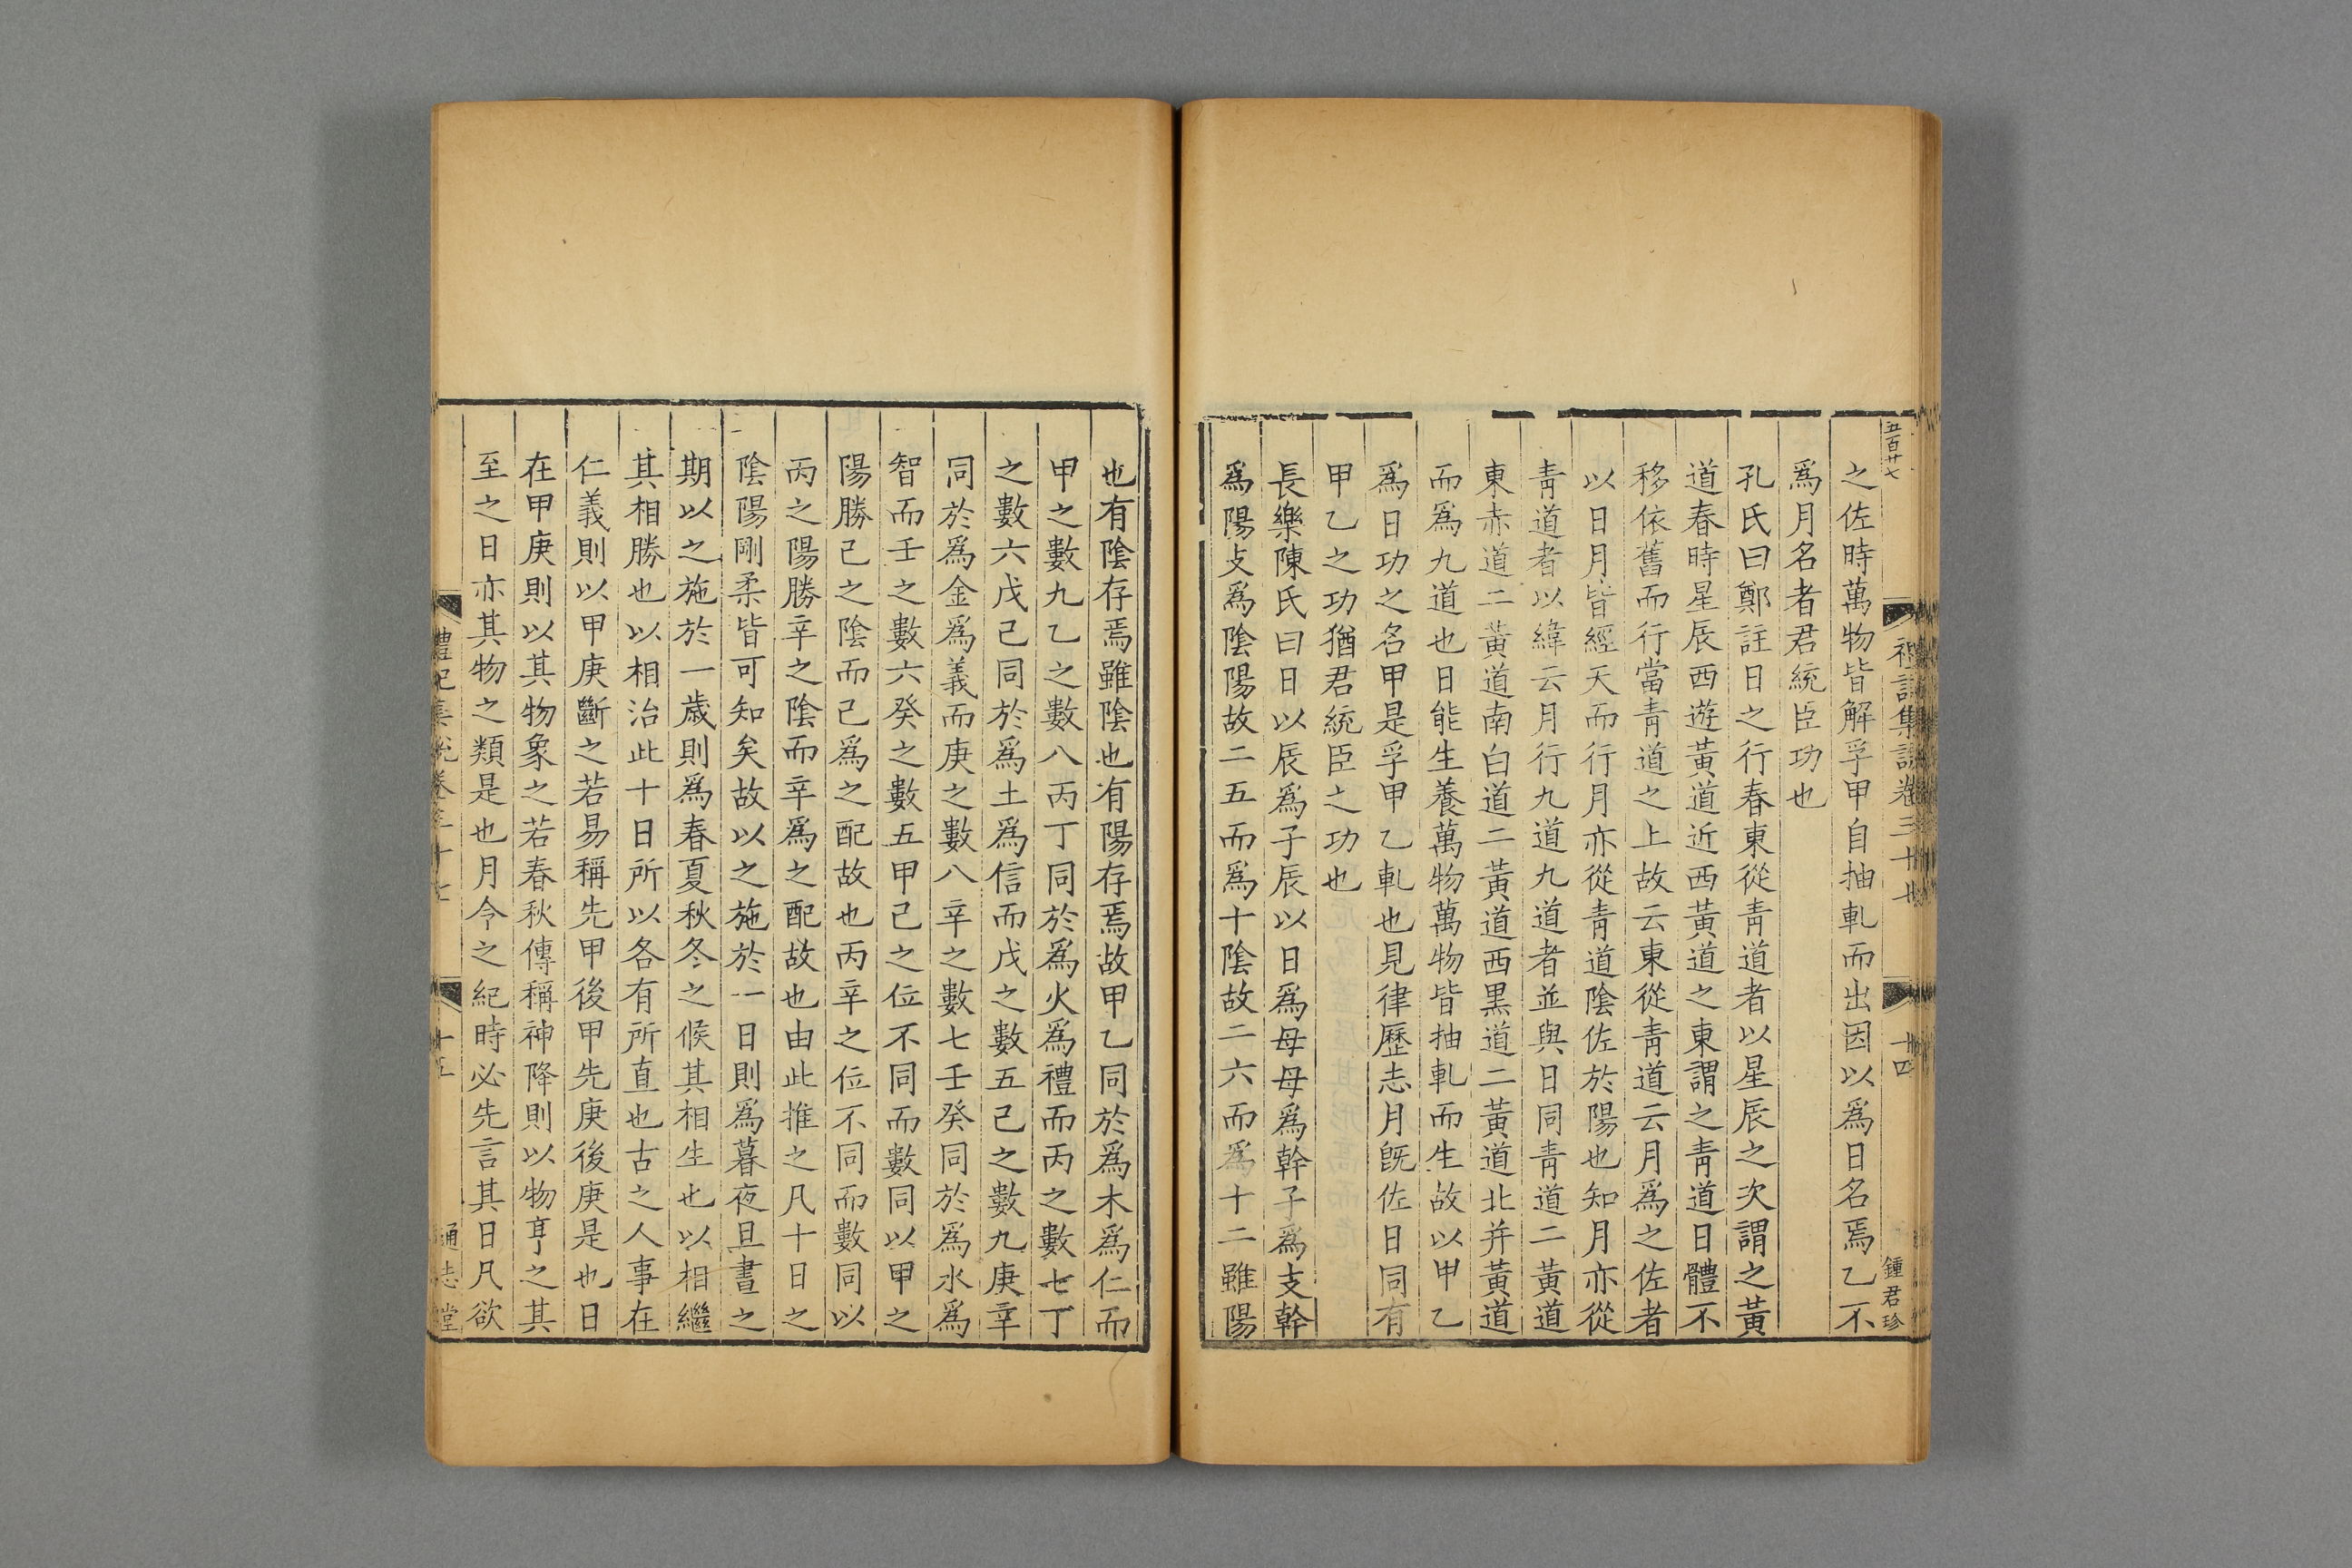 五百廿七
禮記集說卷三十七
十四
鍾君珍
之佐時萬物皆解孚甲自抽軋而出因以爲日名焉乙不
爲月名者君統臣功也
孔氏曰鄭註日之行春東從靑道者以星辰之次謂之黃
道春時星辰西遊黃道近西黃道之東謂之靑道日體不
移依舊而行當靑道之上故云東從靑道云月爲之佐者
以日月皆經天而行月亦從靑道陰佐於陽也知月亦從
靑道者以緯云月行九道九道者並與日同靑道二黃道
東赤道二黃道南白道二黃道西黑道二黃道北并黃道
而爲九道也日能生養萬物萬物皆抽軋而生故以甲乙
爲日功之名甲是孚甲乙軋也見律歷志月旣佐日同有
甲乙之功猶君統臣之功也
長樂陳氏曰日以辰爲子辰以日爲母母爲幹子爲支幹
爲陽支爲陰陽故二五而爲十陰故二六而爲十二雖陽
也有陰存焉雖陰也有陽存焉故甲乙同於爲木爲仁而
甲之數九乙之數八丙丁同於爲火爲禮而丙之數七丁
之數六戊己同於爲土爲信而戊之數五己之數九庚辛
同於爲金爲義而庚之數八辛之數七壬癸同於爲水爲
智而壬之數六癸之數五甲己之位不同而數同以甲之
陽勝己之陰而己爲之配故也丙辛之位不同而數同以
丙之陽勝辛之陰而辛爲之配故也由此推之凡十日之
陰陽剛柔皆可知矣故以之施於一日則爲暮夜旦晝之
期以之施於一歲則爲春夏秋冬之候其相生也以相繼
其相勝也以相治此十日所以各有所直也古之人事在
仁義則以甲庚斷之若易稱先甲後甲先庚後庚是也日
在甲庚則以其物象之若春秋傳稱神降則以物享之其
至之日亦其物之類是也月令之紀時必先言其日凡欲
禮記集說卷三十七
十五
通志堂